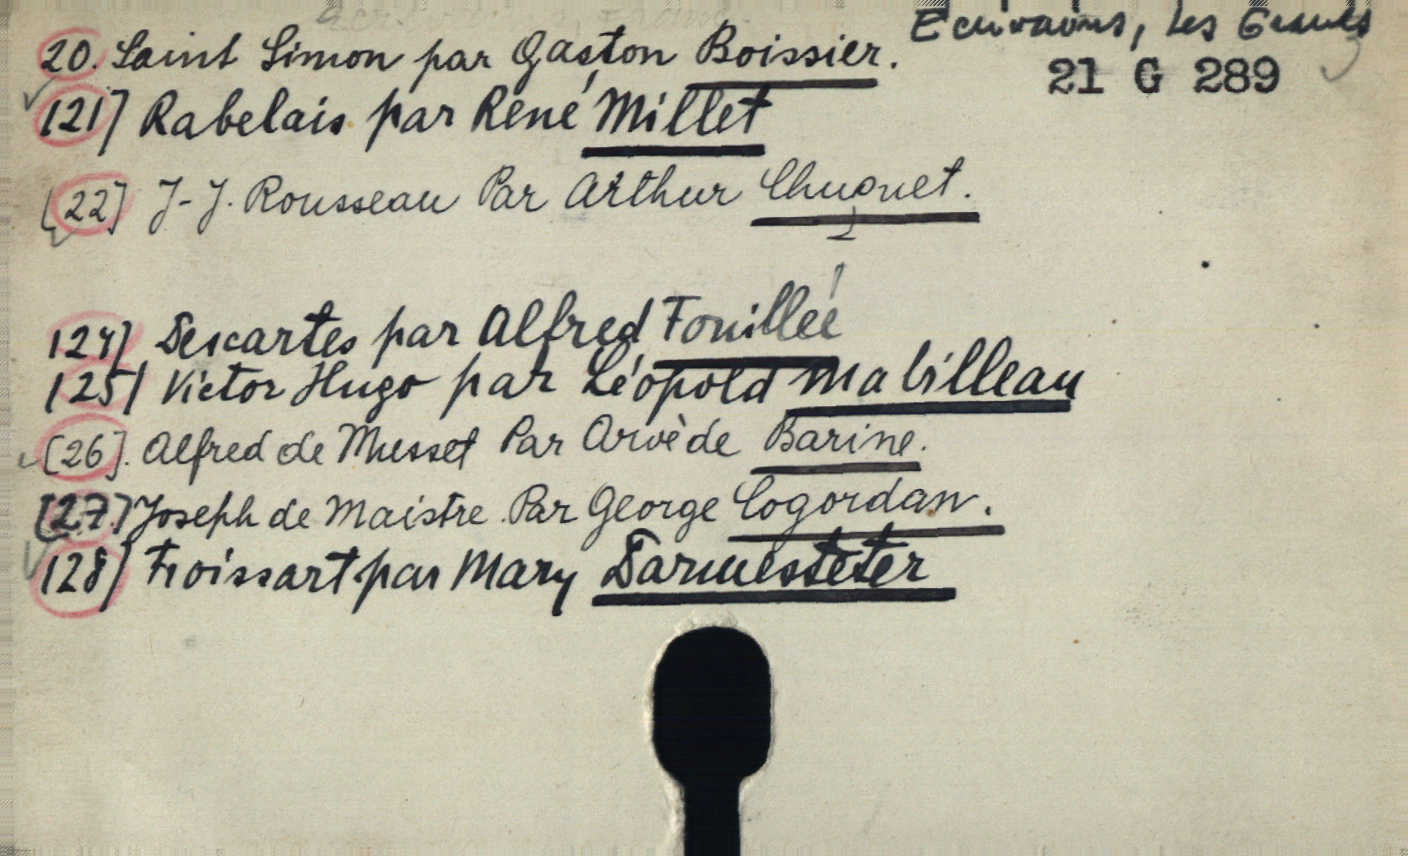 Ecrivains, Les Grands
21 G 289
20. Saint Simon par Gaston Boissier.
[21] Rabelais par René Millet
[22] J-J. Rousseau Par Arthur Chuquet.
[24] Descartes par Alfred Fouillée
[25] Victor Hugo par Léopold Mabilleau
[26]. Alfred de Musset Par Arvède Barine.
[27.] Joseph de Maistre. Par George Cogordan.
[28] Froissart par Mary Darmesteter